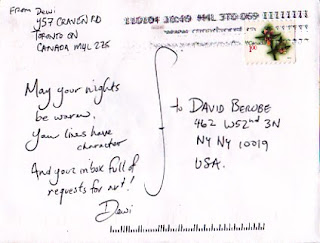 FROM DEWI
457 CRAVEN RD
TORONTO ON
CANADA M4L 2Z5
May your nights
be warm,
Your lives have
character
And your inbox full of
requests for art!
Dewi
to DAVID BERUBE
462 W52nd 3N
NY NY 10019
USA.